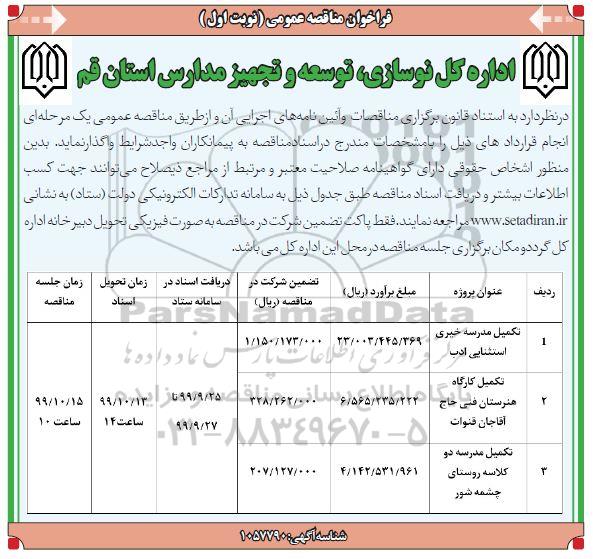 فراخوان مناقصه عمومی (نوبت اول)
اداره کل نوسازی، توسعه و تجهیز مدارس استان قم
درنظردارد به استناد قانون برگزاری مناقصات وآئین نامه‌های اجرایی آن و ازطریق مناقصه عمومی یک مرحله‌ای
انجام قرارداد های ذیل را بامشخصات مندرج دراسنادمناقصه به پیمانکاران واجدشرایط واگذارنماید. بدین
منظور اشخاص حقوقی دارای گواهینامه صلاحیت معتبر و مرتبط از مراجع ذیصلاح می‌توانند جهت کسب
اطلاعات بیشتر و دریافت اسناد مناقصه طبق جدول ذیل به سامانه تدارکات الکترونیکی دولت (ستاد) به نشانی
www.setadiran.ir مراجعه نمایند.فقط پاکت تضمین شرکت در مناقصه به صورت فیزیکی تحویل دبیرخانه اداره
کل گردد ومکان برگزاری جلسه مناقصه درمحل این اداره کل می باشد.
ردیف عنوان پروژه مبلغ برآورد (ریال) تضمین شرکت در مناقصه (ریال) دریافت اسناد در سامانه ستاد زمان تحویل اسناد زمان جلسه مناقصه
۱ تکمیل مدرسه خیری استثنایی ادب ۲۳/۰۰۳/۴۴۵/۳۶۹ ۱/۱۵۰/۱۷۳/۰۰۰
۲ تکمیل کارگاه هنرستان فنی حاج آقاجان قنوات ۶/۵۶۵/۲۳۵/۲۲۲ ۳۲۸/۲۶۲/۰۰۰ ۹۹/۹/۲۵ تا ۹۹/۹/۲۷ ۹۹/۱۰/۱۳ ساعت۱۴ ۹۹/۱۰/۱۵ ساعت ۱۰
۳ تکمیل مدرسه دو کلاسه روستای چشمه شور ۴/۱۴۲/۵۳۱/۹۶۱ ۲۰۷/۱۲۷/۰۰۰
ParsNamadData
مرکز فرآوری اطلاعات پارس نماد داده ها
پایگاه اطلاع رسانی مناقصه و مزایده
۰۲۱-۸۸۳۴۹۶۷۰-۵
شناسه آگهی: ۱۰۵۷۷۹۰